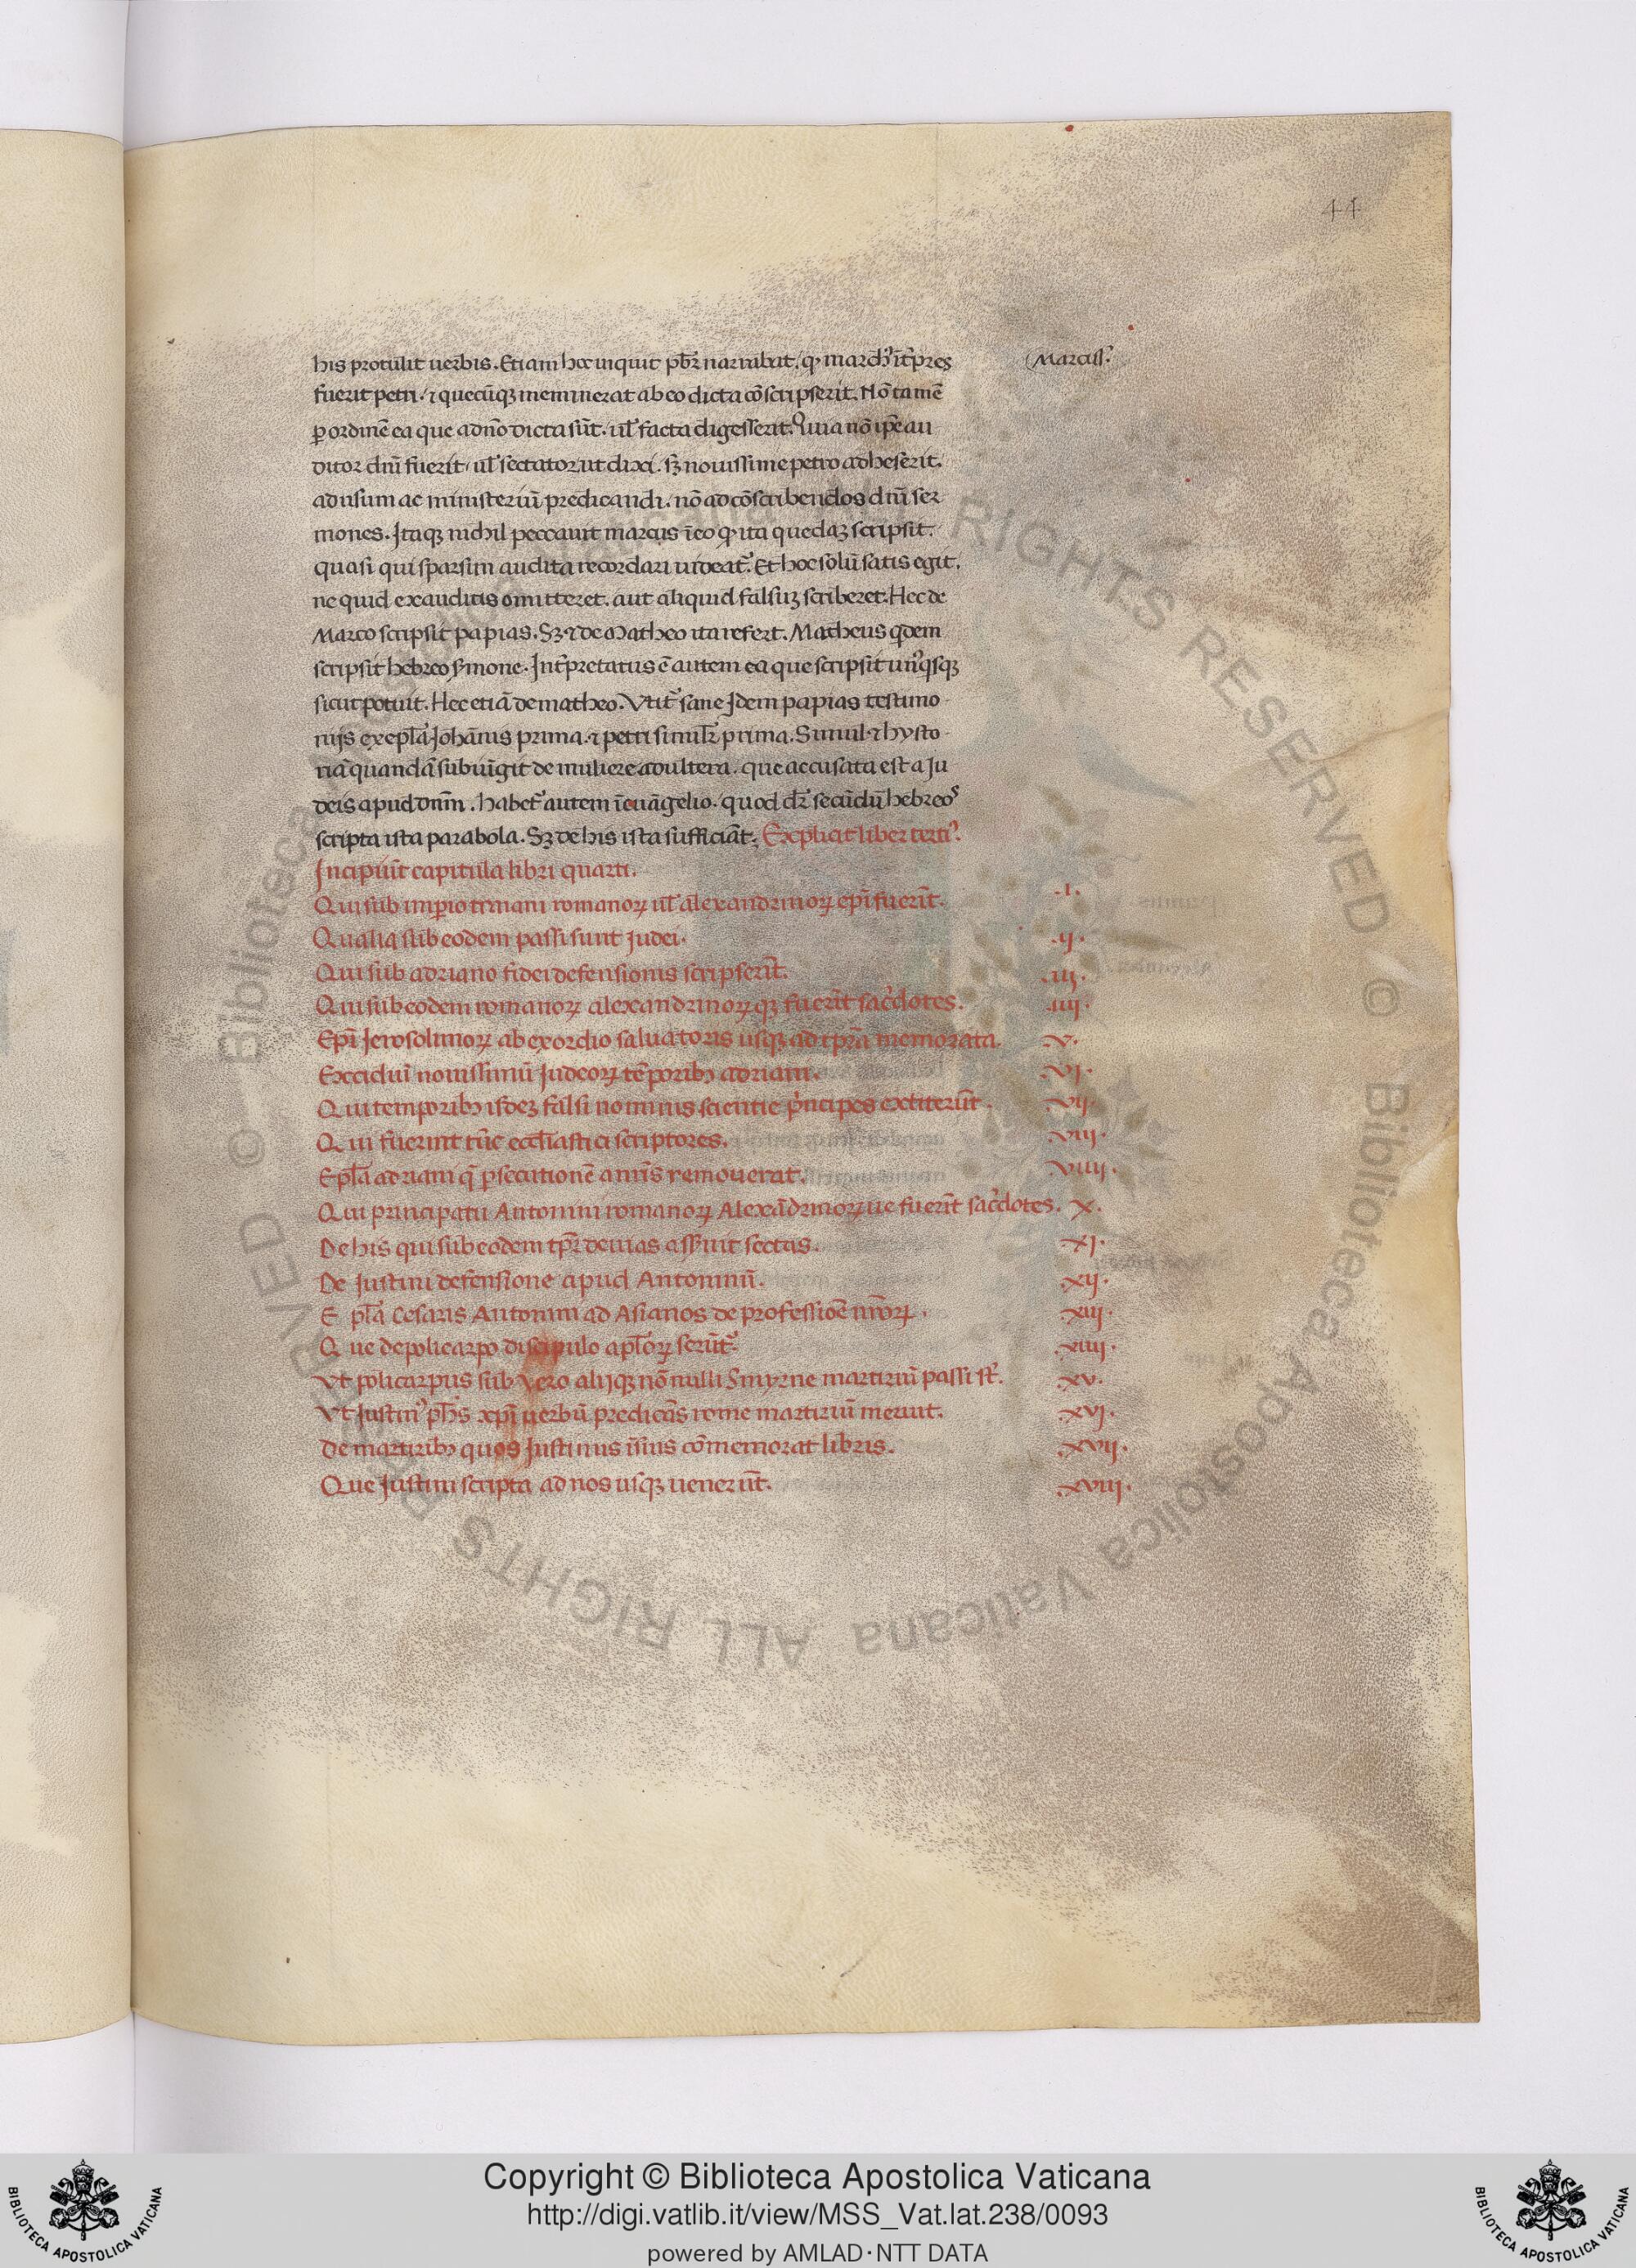 44
his protulit uerbis. Etiam hec inquit pb̄r narrabat. qꝫ march' īt̄pres
Marcus.
fuerit petri. ⁊ quecūqꝫ meminerat ab eo dicta cōscripserit. Nō tamē
ꝑ ordinē ea que a dn̄o dicta sūt. ul̄ facta digesserit. Quia nō ip̄e au
ditor dn̄i fuerit. ul̄ sectator ut dixi. sꝫ nouissime petro adheserit.
ad usum ac ministeriū predicandi. nō ad cōscribendos dn̄i ser
mones. Itaqꝫ nichil peccauit marcus ī eo ꝙ ita quedaꝫ scripsit.
quasi qui sparsim audita recordari uideat᷑. Et hoc solū satis egit.
ne quid ex auditis omitteret. aut aliquid falsuꝫ scriberet. Hec de
Marco scripsit papias. Sꝫ ⁊ de Matheo ita refert. Matheus qdem
scripsit hebreo ẜmone. Int̄pretatus ē autem ea que scripsit un'qsqꝫ
sicut potuit. Hec etiā de matheo. Vtit᷑ sane Idem papias testimo
nijs ex epl̄a Johānis prima. ⁊ petri simil'r prima. Simul ⁊ hysto
riā quandā subiūgit de muliere adultera. que accusata est a Ju
deis apud dn̄m. habet᷑ autem ī euāgelio. quod dr̄ secūdū hebreos
scripta ista parabola. Sꝫ de his ista sufficiāt. Explicit liber terti'.
Incipiūt capitula libri quarti.
Qui sub imꝑio traiani romanoꝝ ul̄ alexandrinoꝝ ep̄i fuerīt. .I.
Qualia sub eodem passi sunt Judei. .ij.
Qui sub adriano fidei defensionis scripserīt. .iij.
Qui sub eodem romanoꝝ alexandrinoꝝqꝫ fuerīt sac̄dotes. .iiij.
Ep̄i Jerosolimoꝝ ab exordio saluatoris usqꝫ ad tp̄ra memorata. .V.
Excidiū nouissimū Judeoꝝ tēporibꝫ adriani. .VI.
Qui temporibꝫ isdeꝫ falsi nominis scientie p'ncipes extiterūt. .VIJ.
Qui fuerint tūc eccl̄iastici scriptores. .VIIJ.
Epl̄a adriani q̄ ꝑsecutionē a nr̄is remouerat. .VIIIJ.
Qui principatu Antonini romanoꝝ Alexādrinoꝝ ue fuerīt sac̄dotes. X.
De his qui sub eodem tp̄r deuias asseruit sectas. .XI.
De Justini defensione apud Antoninū. .XIJ.
Epl̄a Cesaris Antonini ad Asianos de professiōe nr̄oꝝ. .XIIJ.
Que de policarpo discipulo apl̄oꝝ ferūt᷑. .XIIIJ.
Vt policarpus sub Vero alijqꝫ nōnulli Smyrne martiriū passi st̄. .XV.
Vt Justin' ph̄s xp̄i uerbū predicās rome martiriū meruit. .XVJ.
De martiribꝫ quos Justinus ī suis cōmemorat libris. .XVIJ.
Que Justini scripta ad nos usqꝫ uenerūt. .XVIIJ.
© Biblioteca Apostolica Vaticana ALL RIGHTS RESERVED
Copyright © Biblioteca Apostolica Vaticana
http://digi.vatlib.it/view/MSS_Vat.lat.238/0093
powered by AMLAD·NTT DATA
BIBLIOTECA APOSTOLICA VATICANA
BIBLIOTECA APOSTOLICA VATICANA